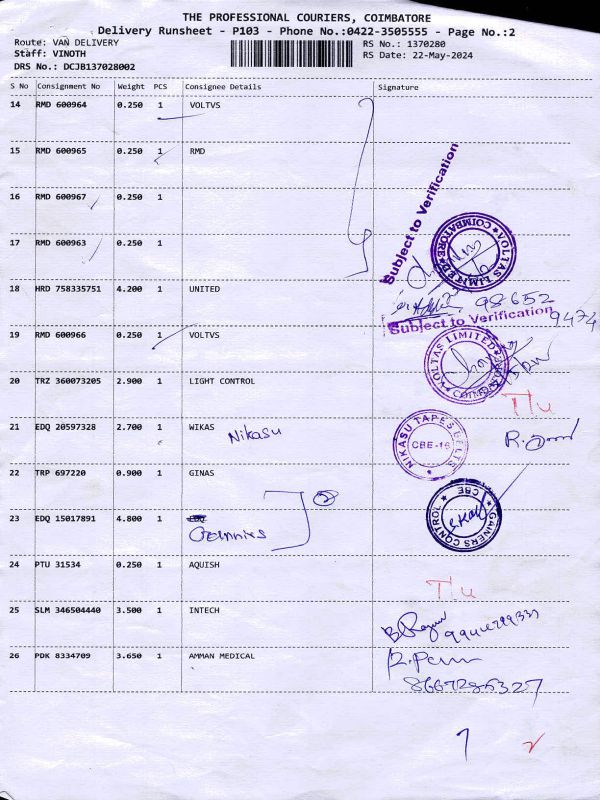 THE PROFESSIONAL COURIERS, COIMBATORE
Delivery Runsheet - P103 - Phone No.:0422-3505555 - Page No.:2
Route: VAN DELIVERY
RS No.: 1370280
Staff: VINOTH
RS Date: 22-May-2024
DRS No.: DCJB137028002
S No Consignment No Weight PCS Consignee Details Signature
14 RMD 600964 0.250 1 VOLTVS
15 RMD 600965 0.250 1 RMD
16 RMD 600967 0.250 1
17 RMD 600963 0.250 1
Subject to Verification
VOLTAS LIMITED COIMBATORE
18 HRD 758335751 4.200 1 UNITED
98652
9474
Subject to Verification
19 RMD 600966 0.250 1 VOLTVS
VOLTAS LIMITED
20 TRZ 360073205 2.900 1 LIGHT CONTROL
21 EDQ 20597328 2.700 1 WIKAS
Nikasu
NIKASU TAPES BELTS
CBE-16
22 TRP 697220 0.900 1 GINAS
23 EDQ 15017891 4.800 1
GAINERS CONTROL CBE
24 PTU 31534 0.250 1 AQUISH
25 SLM 346504440 3.500 1 INTECH
26 PDK 8334709 3.650 1 AMMAN MEDICAL
8667286327